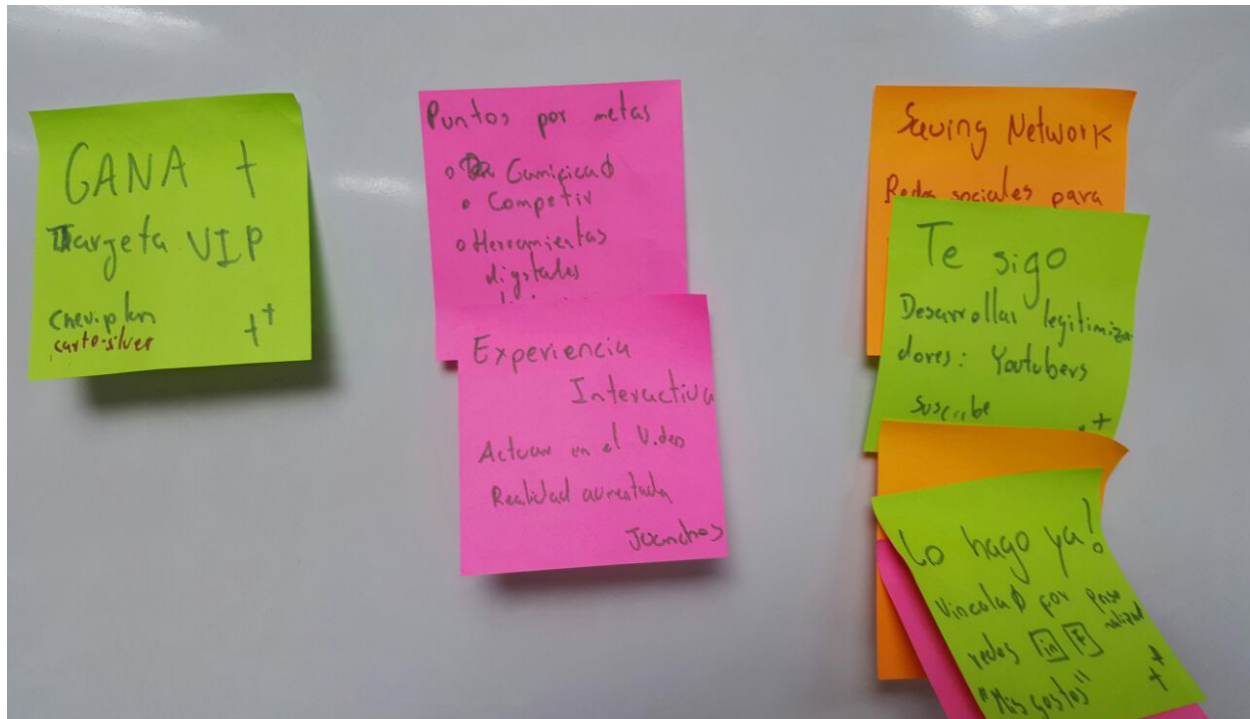 GANA +
Targeta VIP
Cheviplan
carto-silver
++
Puntos por metas
Gamificaø
Competiv
Herramientas
digitales
Experiencia
Interactiva
Actuar en el Video
Realidad aumentada
Juanchos
Saving Network
Redes sociales para
Te sigo
Desarrollar legitimiza
dores: Youtubers
Suscribe
Lo hago ya!
Vinculaø por
redes in F
"Mis gostos"
++